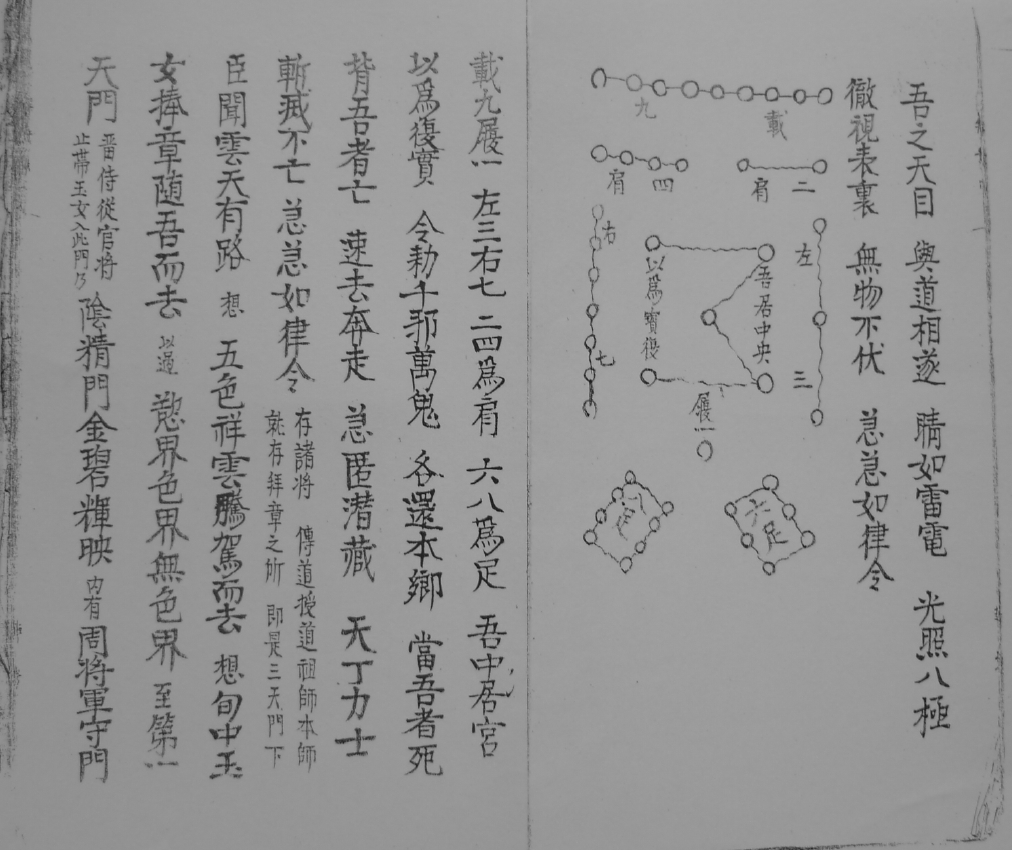 吾之天目 與道相遂 睛如雷電 光照八極
徹視表裏 無物不伏 急急如律令
載 九
二 肩
四 肩
左 三
右 七
吾居中央
以為實復
履一
六足
八足
載九履一 左三右七 二四為肩 六八為足 吾中居宮
以為復實 令勑千邪萬鬼 各還本鄉 當吾者死
背吾者亡 速去奔走 急匿潜藏 天丁力士
斬滅不亡 急急如律令 存諸將 傳道授道祖師本師
就存拜章之所 即是三天門下
臣聞雲天有路 想 五色祥雲騰駕而去 想旬中玉
女捧章随吾而去 以過 慾界色界無色界 至第一
天門 畱侍從官將
止帶玉女入此門乃 陰精門金碧輝映 内有 周將軍守門